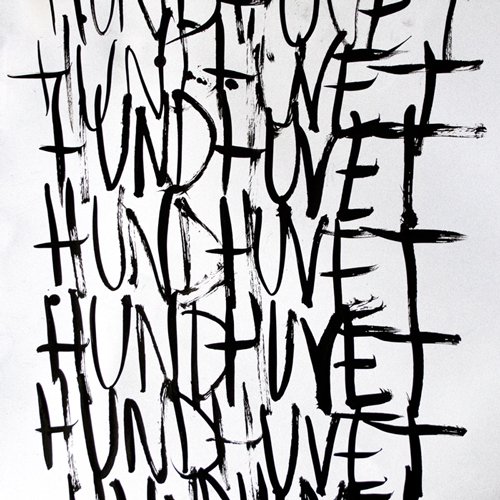 HUNDHUVET
HUNDHUVET
HUNDHUVET
HUNDHUVET
HUNDHUVET
HUNDHUVET